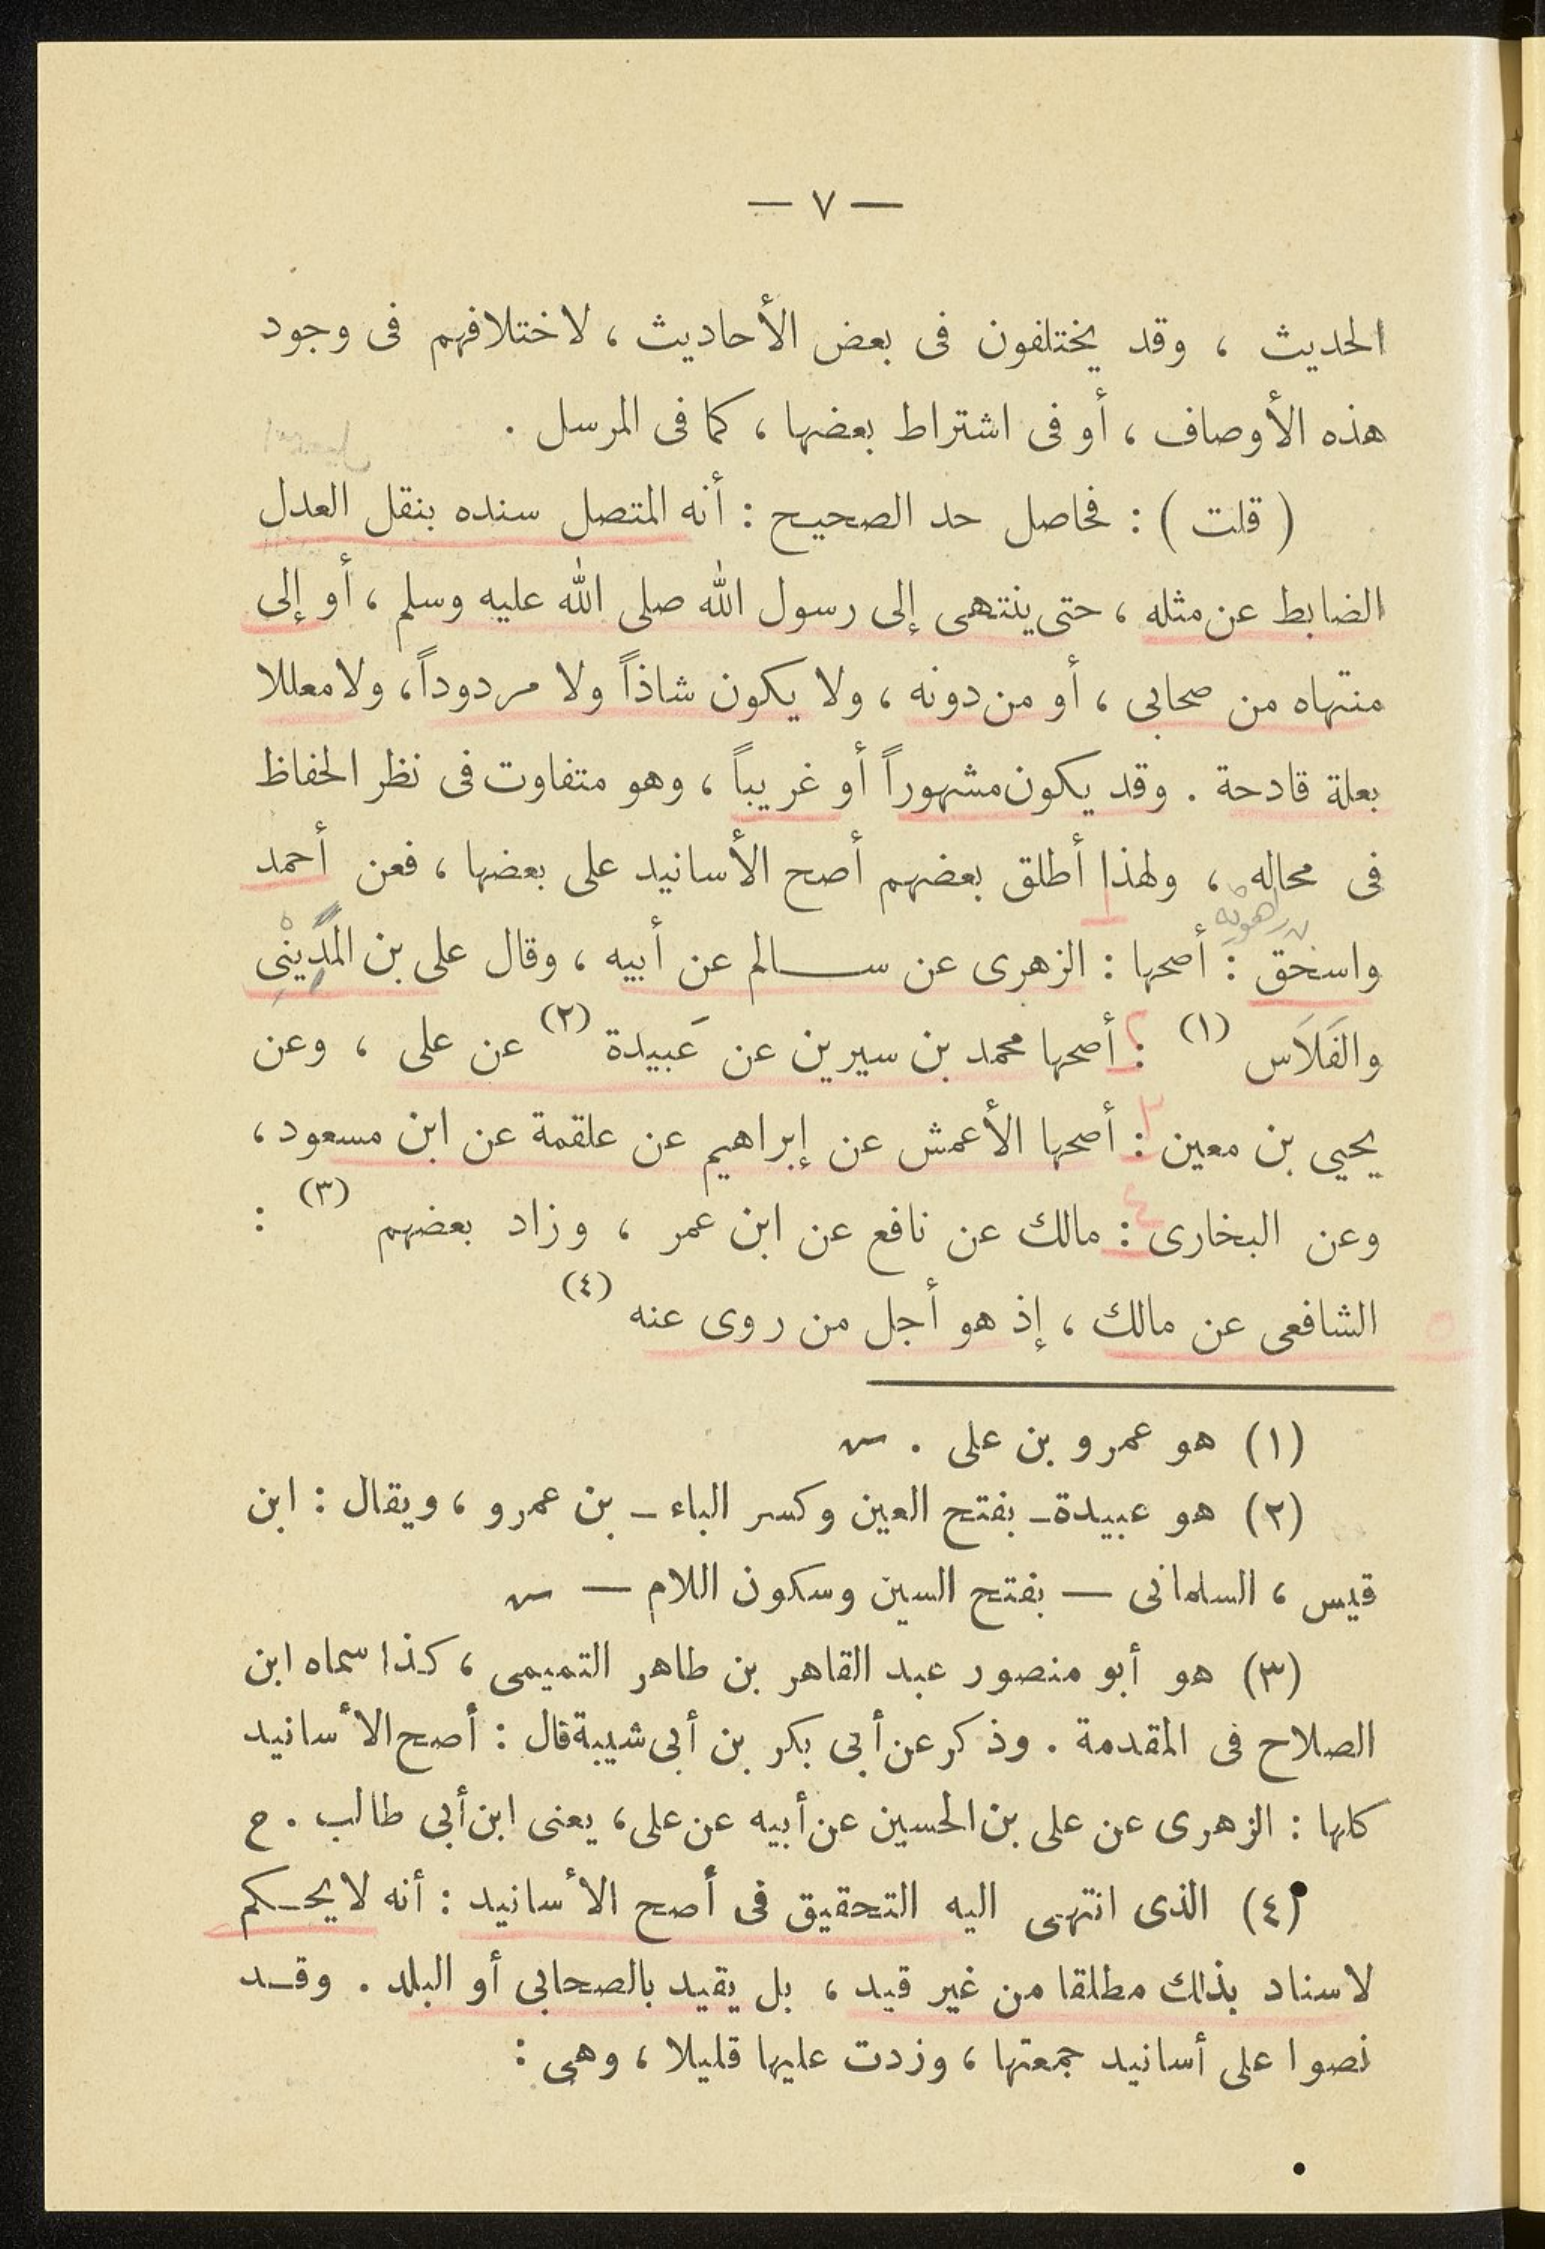 — ٧ —
الحديث ، وقد يختلفون فى بعض الأحاديث ، لاختلافهم فى وجود
هذه الأوصاف ، أو فى اشتراط بعضها ، كما فى المرسل .
( قلت ) : فحاصل حد الصحيح : أنه المتصل سنده بنقل العدل
الضابط عن مثله ، حتى ينتهى إلى رسول الله صلى الله عليه وسلم ، أو إلى
منتهاه من صحابى ، أو من دونه ، ولا يكون شاذاً ولا مردوداً ، ولا معللا
بعلة قادحة . وقد يكون مشهوراً أو غريباً ، وهو متفاوت فى نظر الحفاظ
فى محاله ، ولهذا أطلق بعضهم أصح الأسانيد على بعضها ، فعن أحمد
بن راهويه
واسحٰق : أصحها : الزهرى عن ســـالم عن أبيه ، وقال على بن المَدِينْىِ
والفَلَاَس (١) : أصحها محمد بن سيرين عن عَبيدة (٢) عن على ، وعن
يحيى بن معين : أصحها الأعمش عن إبراهيم عن علقمة عن ابن مسعود ،
وعن البخارى : مالك عن نافع عن ابن عمر ، وزاد بعضهم (٣) :
الشافعى عن مالك ، إذ هو أجل من روى عنه (٤)
(١) هو عمرو بن على . س
(٢) هو عبيدة ـ بفتح العين وكسر الباء ـ بن عمرو ، ويقال : ابن
قيس ، السلمانى — بفتح السين وسكون اللام — س
(٣) هو أبو منصور عبد القاهر بن طاهر التميمى ، كذا سماه ابن
الصلاح فى المقدمة . وذكر عن أبى بكر بن أبى شيبة قال : أصح الأسانيد
كلها : الزهرى عن على بن الحسين عن أبيه عن على ، يعنى ابن أبى طالب . ح
(٤) الذى انتهى اليه التحقيق فى أصح الأسانيد : أنه لا يحـكم
لاسناد بذلك مطلقا من غير قيد ، بل يقيد بالصحابى أو البلد . وقـد
نصوا على أسانيد جمعتها ، وزدت عليها قليلا ، وهى :